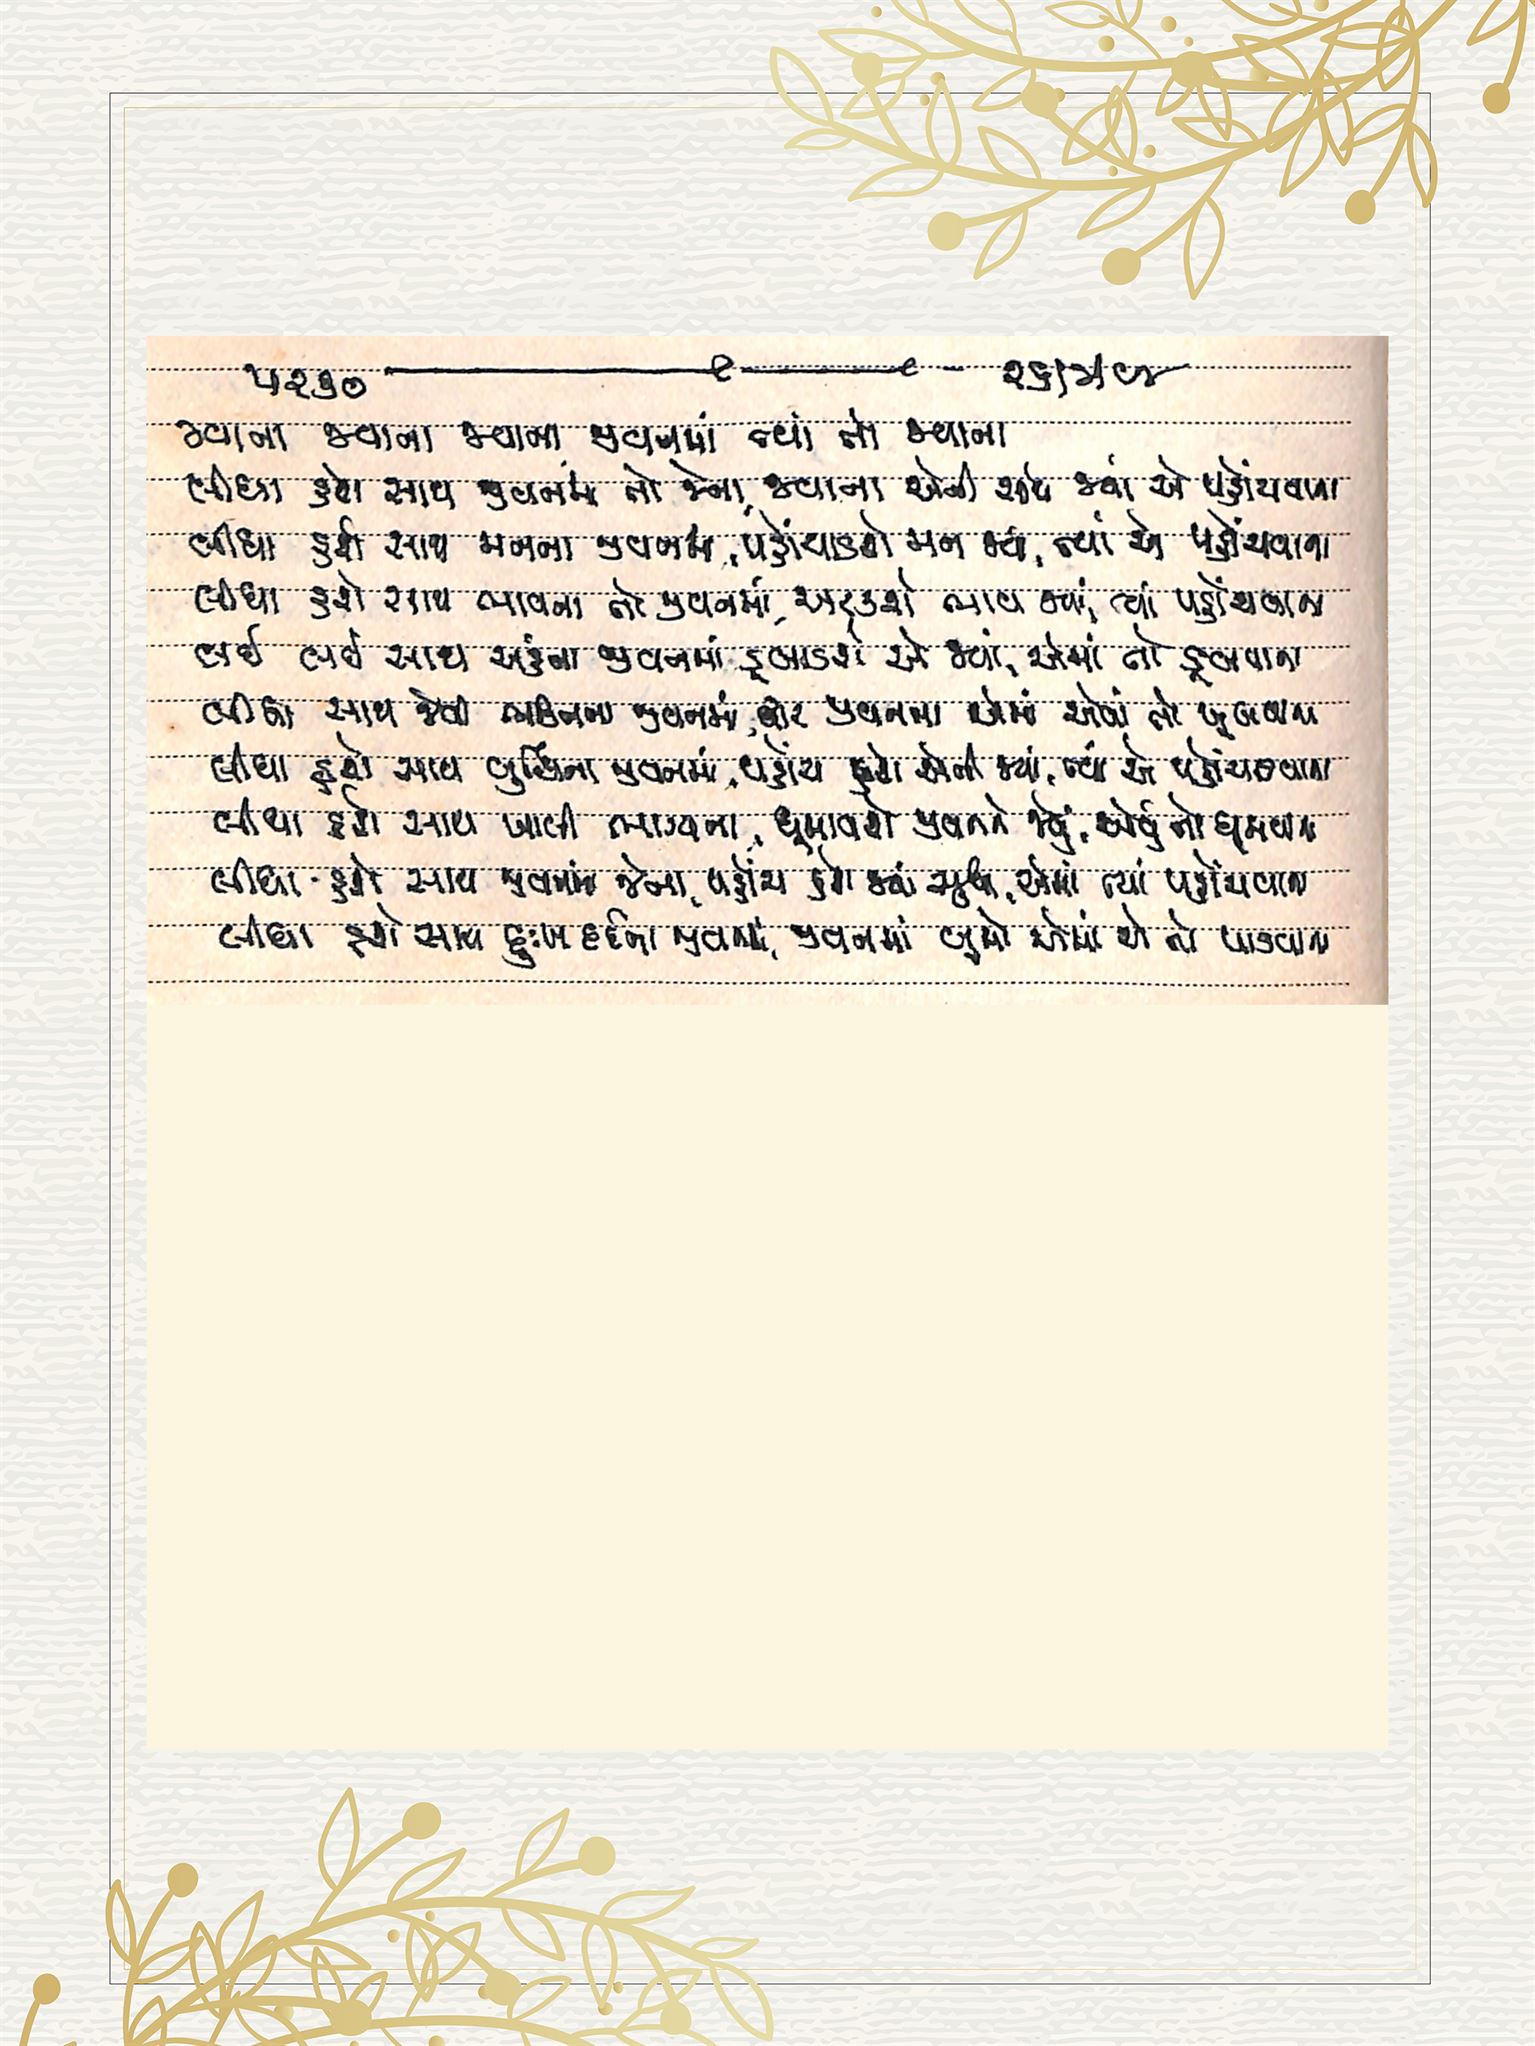 ૫૨૩૦ ૨૬/મે/૯૪
જવાના જવાના જવાના જીવનમાં ત્યાં તો જવાના
લીધા હશે સાથ જીવનમાં તો જેના, જવાના એની સાથે જ્યાં એ પહોંચવાના
લીધા હશે સાથ મનના જીવનમાં, પહોંચાડશે મન જ્યાં, ત્યાં એ પહોંચવાના
લીધા હશે સાથ ભાવના તો જીવનમાં, અટકશે ભાવ જ્યાં, ત્યાં પહોંચવાના
લઈ લઈ સાથ અહંના જીવનમાં, ડૂબાડશે એ જ્યાં, એમાં તો ડૂબવાના
લીધા સાથ જેવી ભક્તિના જીવનમાં, જીવનમાં એમાં એવાં તો
લીધા હશે સાથ બુદ્ધિના જીવનમાં, પહોંચ હશે એની જ્યાં, ત્યાં એ પહોંચાડવાના
લીધા હશે સાથ ખાલી ભાગ્યના, ઘૂમાવશે જીવનને જેવું, એવું તો ઘૂમવાના
લીધા હશે સાથ જીવનમાં જેના, પહોંચ હશે જ્યાં સુધી, એમાં ત્યાં પહોંચવાના
લીધા હશે સાથ દુઃખ દર્દના જીવનમાં, જીવનમાં બુમો એમાં એ તો પાડવાના